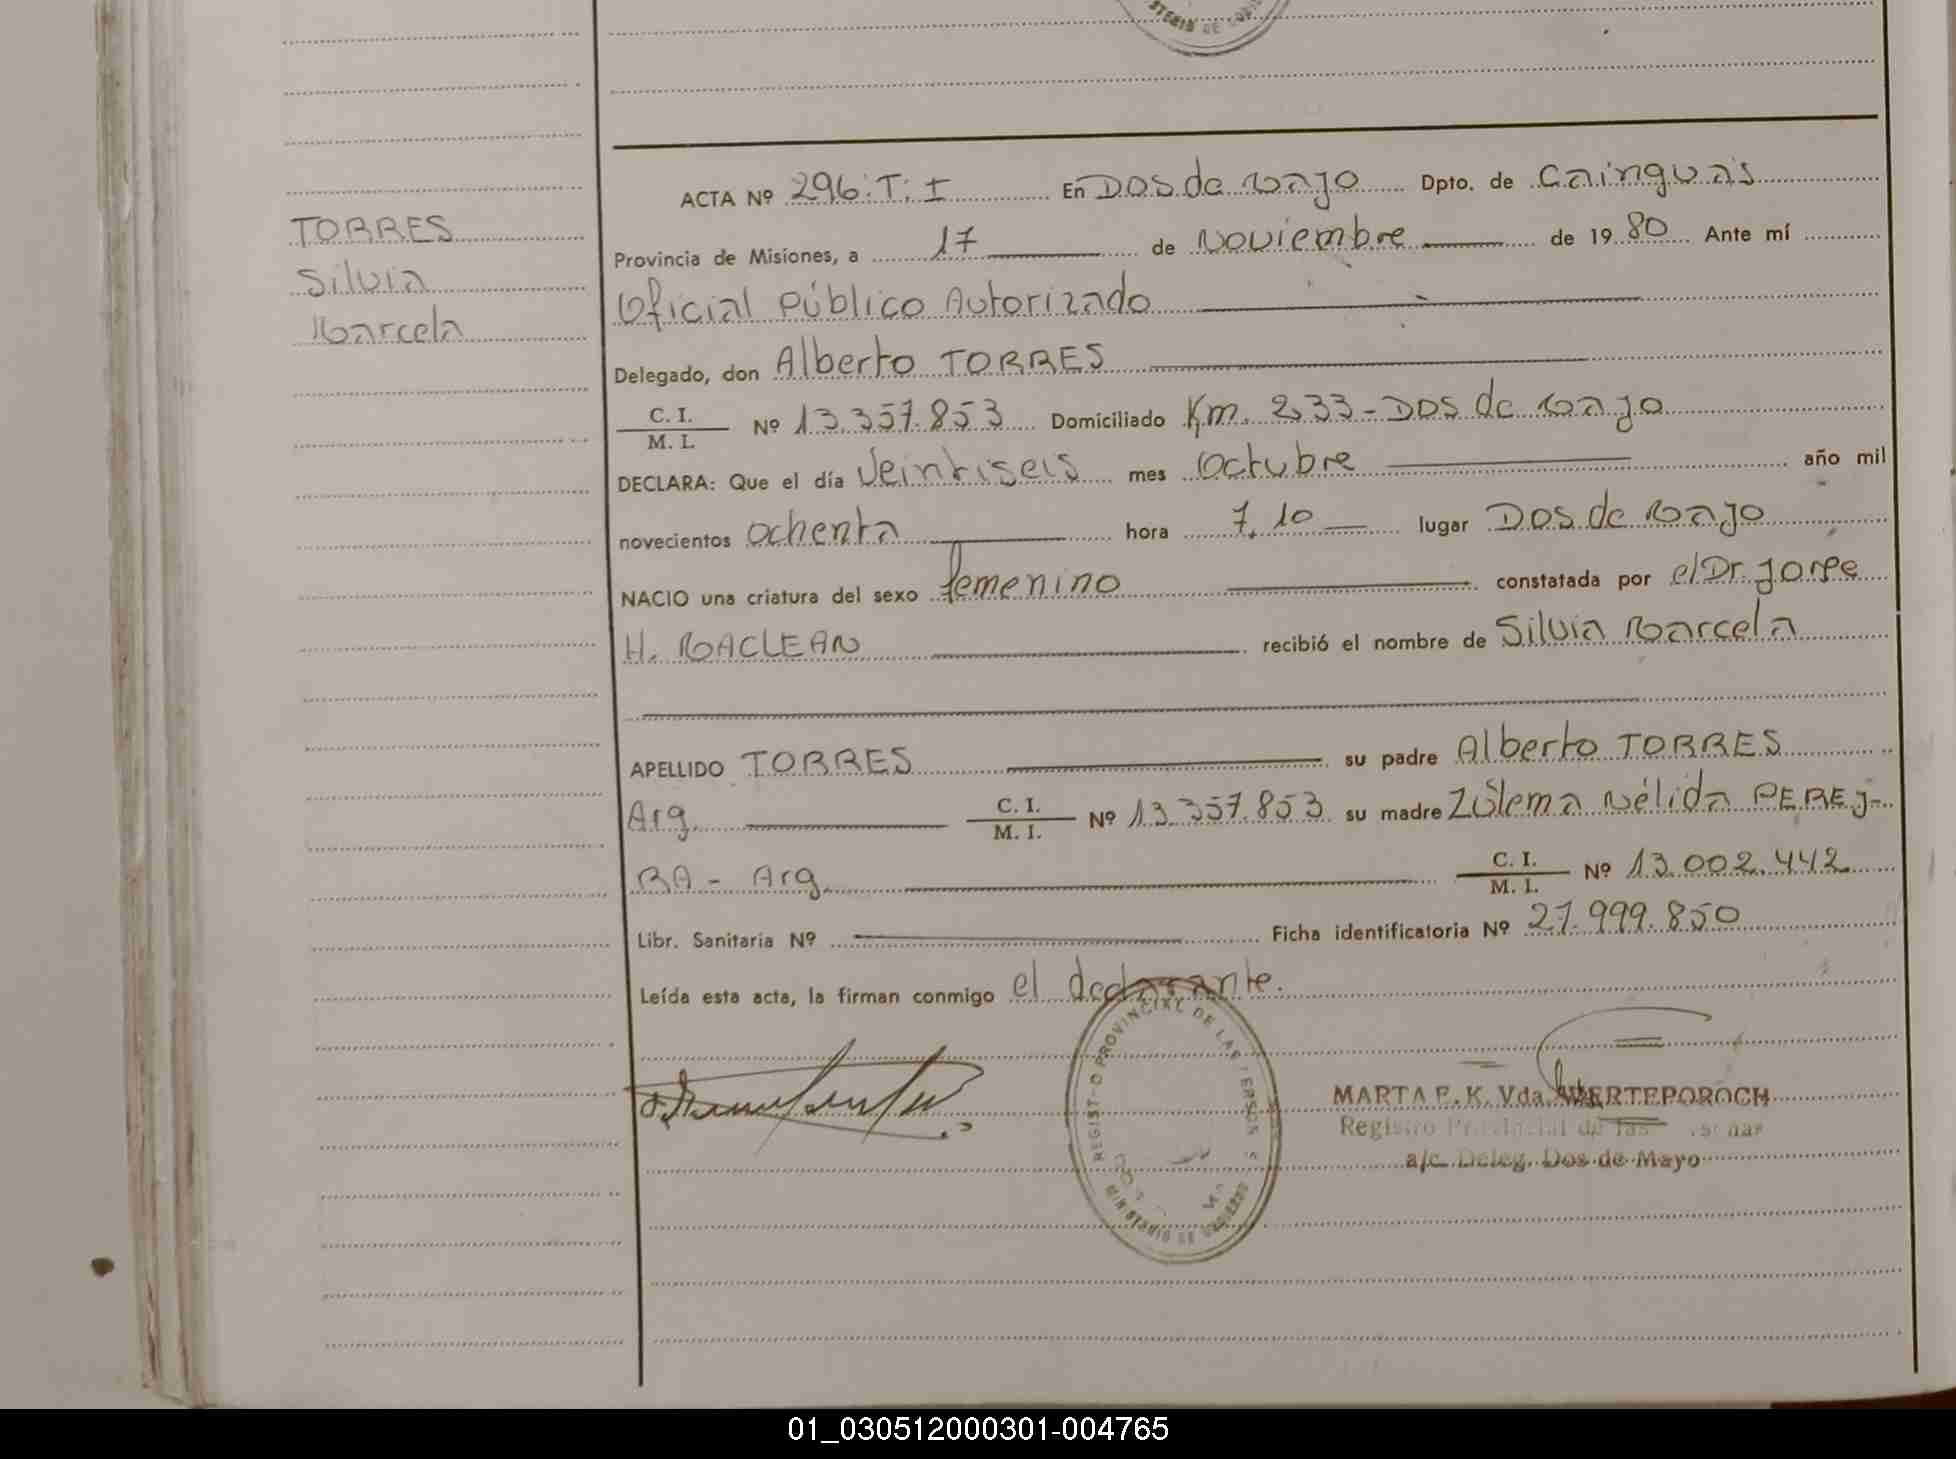 STERIO DE GOBIE
ACTA Nº 296. T. I En Dos de Mayo Dpto. de Cainguás
TORRES
Silvia
Marcela
Provincia de Misiones, a 17 de Noviembre de 1980 Ante mí
Oficial Público Autorizado
Delegado, don Alberto TORRES
C. I.
M. I.
Nº 13.357.853 Domiciliado Km. 233 - Dos de Mayo
DECLARA: Que el día Veintiseis mes Octubre año mil
novecientos ochenta hora 7,10 lugar Dos de Mayo
NACIO una criatura del sexo femenino constatada por el Dr. Jorge
H. MACLEAN recibió el nombre de Silvia Marcela
APELLIDO TORRES su padre Alberto TORRES
Arg. C. I. M. I. Nº 13.357.853 su madre Zulema Nélida PEREJ-
RA - Arg. C. I. M. I. Nº 13.002.442
Libr. Sanitaria Nº Ficha identificatoria Nº 27.999.850
Leída esta acta, la firman conmigo el declarante.
REGISTRO PROVINCIAL DE LAS PERSONAS
MINISTERIO DE GOBIERNO
MARTA E. K. Vda. WERTEPOROCH
Registro Provincial de las Personas
a/c. Deleg. Dos de Mayo
01_030512000301-004765